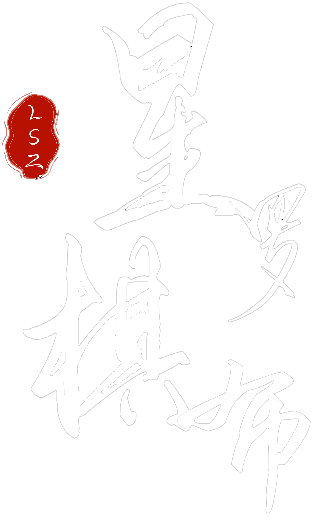 星罗
棋布
LSZ